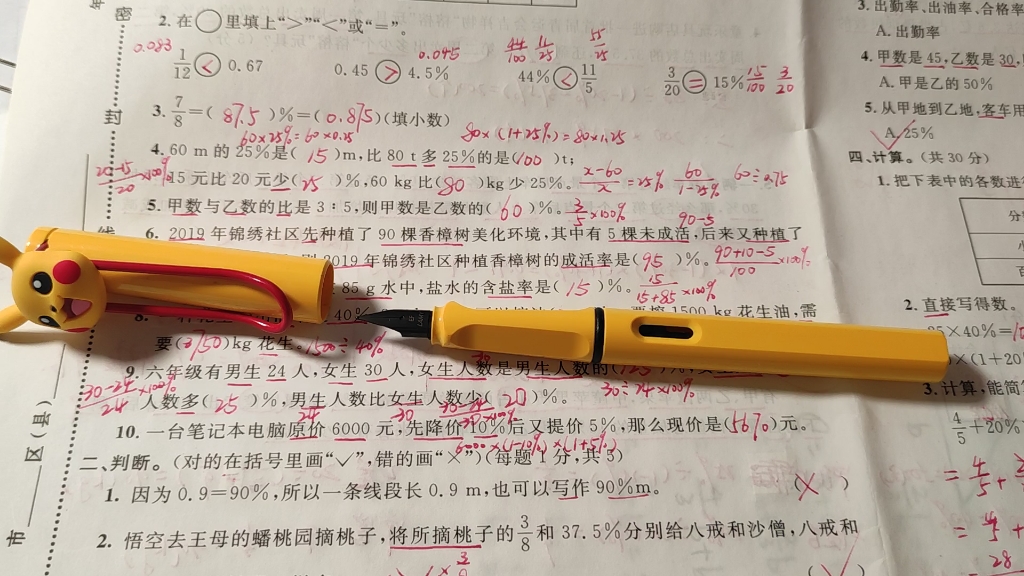 密
2. 在○里填上“>”“<”或“=”。
0.083 0.045 44/100 11/25 55/25
1/12 < 0.67 0.45 > 4.5% 44% < 11/5 3/20 = 15% 15/100 3/20
封
3. 7/8=( 87.5 )%=( 0.875 )(填小数)
60×25%=60×0.25 80×(1+25%)=80×1.25
4. 60 m 的 25%是( 15 )m,比 80 t 多 25%的是(100 )t;
15 元比 20 元少( 25 )%,60 kg 比(80 )kg 少 25%。 x-60/x=25% 60/1-25% 60÷0.75
线
5. 甲数与乙数的比是 3:5,则甲数是乙数的( 60 )%。 3/5×100%
90-5
6. 2019 年锦绣社区先种植了 90 棵香樟树美化环境,其中有 5 棵未成活,后来又种植了
2019 年锦绣社区种植香樟树的成活率是( 95 )%。 90+10-5/100×100%
85 g 水中,盐水的含盐率是( 15 )%。 15/15+85×100%
8. 40% 1500 kg 花生油,需
要(3750)kg 花生。 1500÷40%
9. 六年级有男生 24 人,女生 30 人,女生人数是男生人数的
30-24/24×100% 30÷24×100%
人数多( 25 )%,男生人数比女生人数少( 20 )%。
10. 一台笔记本电脑原价 6000 元,先降价 10%后又提价 5%,那么现价是(5670)元。
6000×(1-10%)×(1+5%)
区(县)
市
二、判断。(对的在括号里画“✓”,错的画“×”)(每题 1 分,共 5)
1. 因为 0.9=90%,所以一条线段长 0.9 m,也可以写作 90%m。 (×)
2. 悟空去王母的蟠桃园摘桃子,将所摘桃子的 3/8 和 37.5%分别给八戒和沙僧,八戒和
3. 出勤率、出油率、合格率
A. 出勤率
4. 甲数是 45,乙数是 30,
A. 甲是乙的 50%
5. 从甲地到乙地,客车用
A. 25%
四、计算。(共 30 分)
1. 把下表中的各数进
2. 直接写得数。
×40%=
×(1+20
3. 计算,能简
4/5+20%
= 4/5+
28